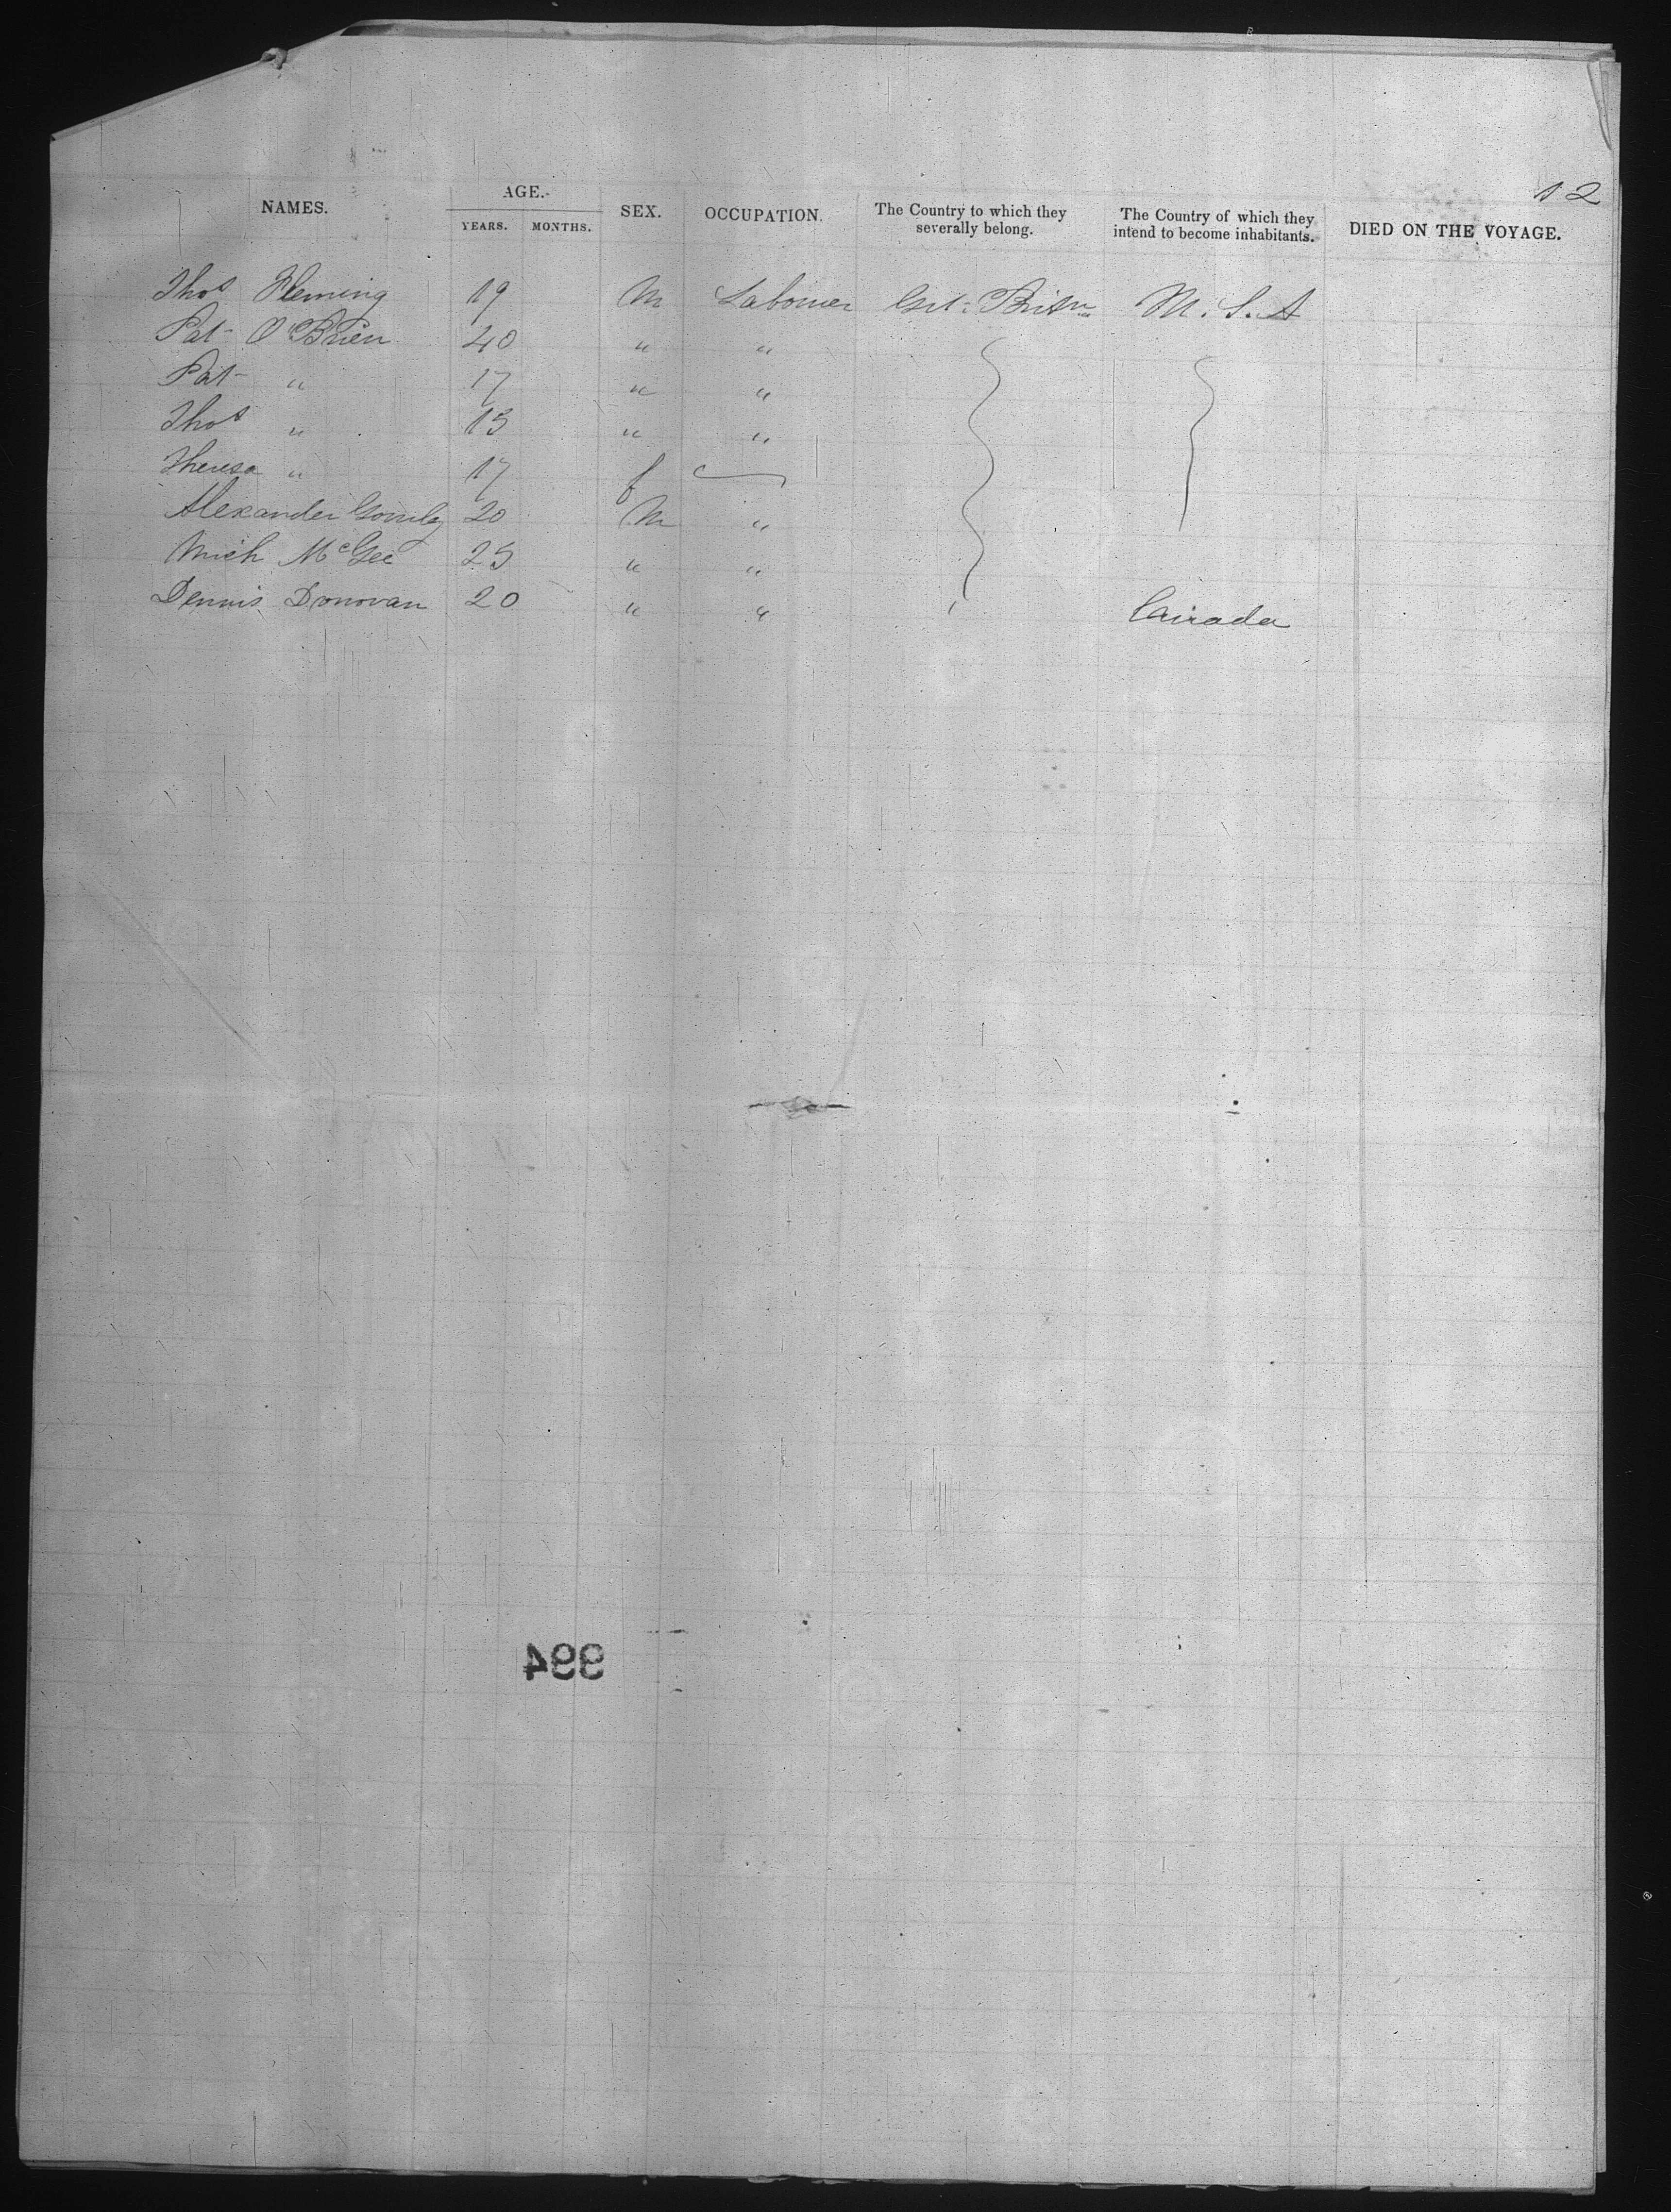 12
NAMES. AGE. YEARS. MONTHS. SEX. OCCUPATION. The Country to which they severally belong. The Country of which they intend to become inhabitants. DIED ON THE VOYAGE.
Thos Fleming 19 M Labourer Grt. Britn U.S.A
Pat O'Brien 40 " "
Pat " 17 " "
Thos " 15 " "
Theresa " 17 f
Alexander 20 M "
Mich McGee 25 " "
Dennis Donovan 20 " " Canada
994